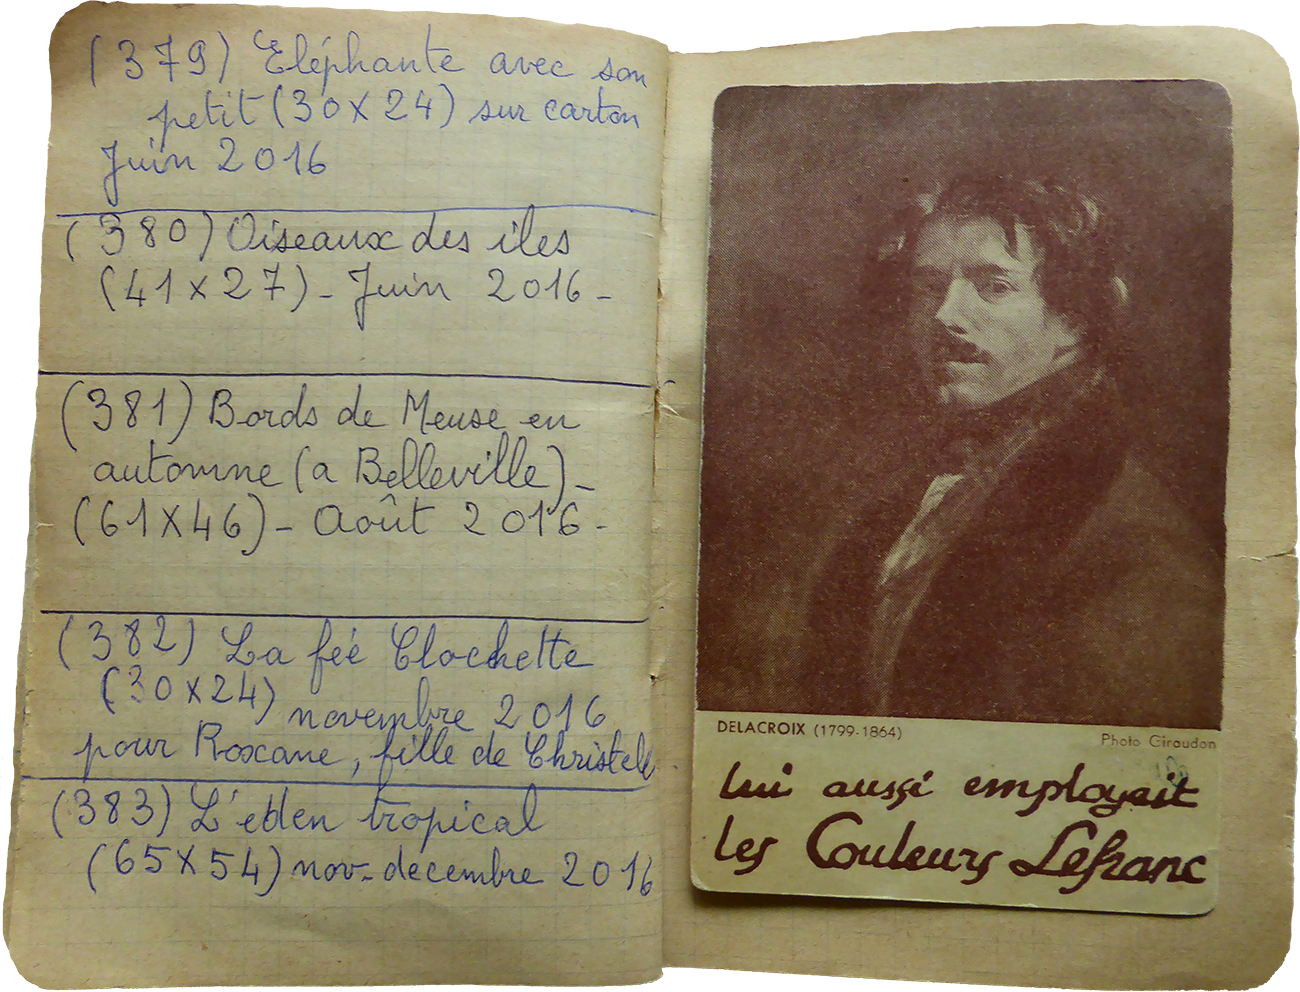 (379) Eléphante avec son
petit (30X24) sur carton
Juin 2016
(380) Oiseaux des iles
(41x27)_ Juin 2016 _
(381) Bords de Meuse en
automne (a Belleville)_
(61X46)_ Août 2016 _
(382) La fée Clochette
(30X24) novembre 2016
pour Roxane, fille de Christelle
(383) L'eden tropical
(65X54) nov-decembre 2016
DELACROIX (1799-1864)
Photo Giraudon
lui aussi employait
les Couleurs Lefranc